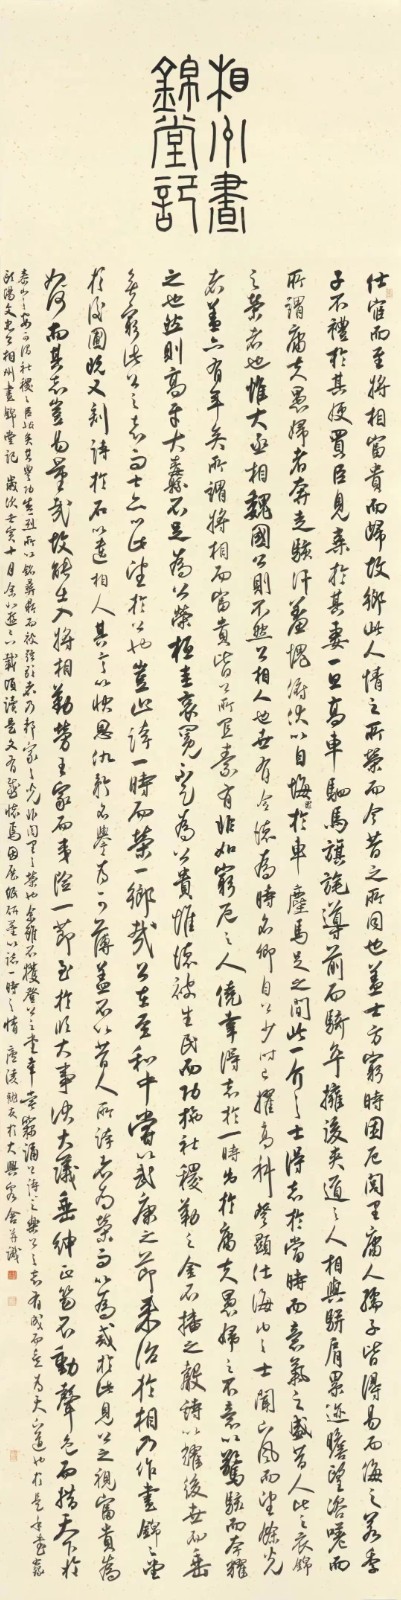 相州晝
錦堂記
仕宦而至將相富貴而歸故鄉此人情之所榮而今昔之所同也蓋士方窮時困厄閭里庸人孺子皆得易而侮之若季
子不禮於其嫂買臣見棄於其妻一旦高車駟馬旗旄導前而騎卒擁後夾道之人相與駢肩累迹瞻望咨嗟而
所謂庸夫愚婦者奔走駭汗羞愧俯伏以自悔於車塵馬足之間此一介之士得志於當時而意氣之盛昔人比之衣錦
之榮者也惟大丞相魏國公則不然公相人也世有令德為時名卿自公少時已擢高科登顯仕海內之士聞下風而望餘光
者蓋亦有年矣所謂將相而富貴皆公所宜素有非如窮厄之人僥幸得志於一時出於庸夫愚婦之不意以驚駭而夸耀
之也然則高牙大纛不足為公榮桓圭袞冕不足為公貴惟德被生民而功施社稷勒之金石播之聲詩以耀後世而垂
無窮此公之志而士亦以此望於公也豈止誇一時而榮一鄉哉公在至和中嘗以武康之節來治於相乃作晝錦之堂
於後圃既又刻詩於石以遺相人其言以快恩仇矜名譽為可薄蓋不以昔人所誇者為榮而以為戒於此見公之視富貴為
如何而其志豈易量哉故能出入將相勤勞王家而夷險一節至於臨大事決大議垂紳正笏不動聲色而措天下於
泰山之安可謂社稷之臣矣其豐功盛烈所以銘彝鼎而被弦歌者乃邦家之光非閭里之榮也余雖不獲登公之堂幸嘗竊誦公之詩樂公之志有成而喜為天下道也於是乎書
歐陽文忠公相州晝錦堂記 歲次辛亥十月 讀是文有感 一時之情 於大興客舍並識